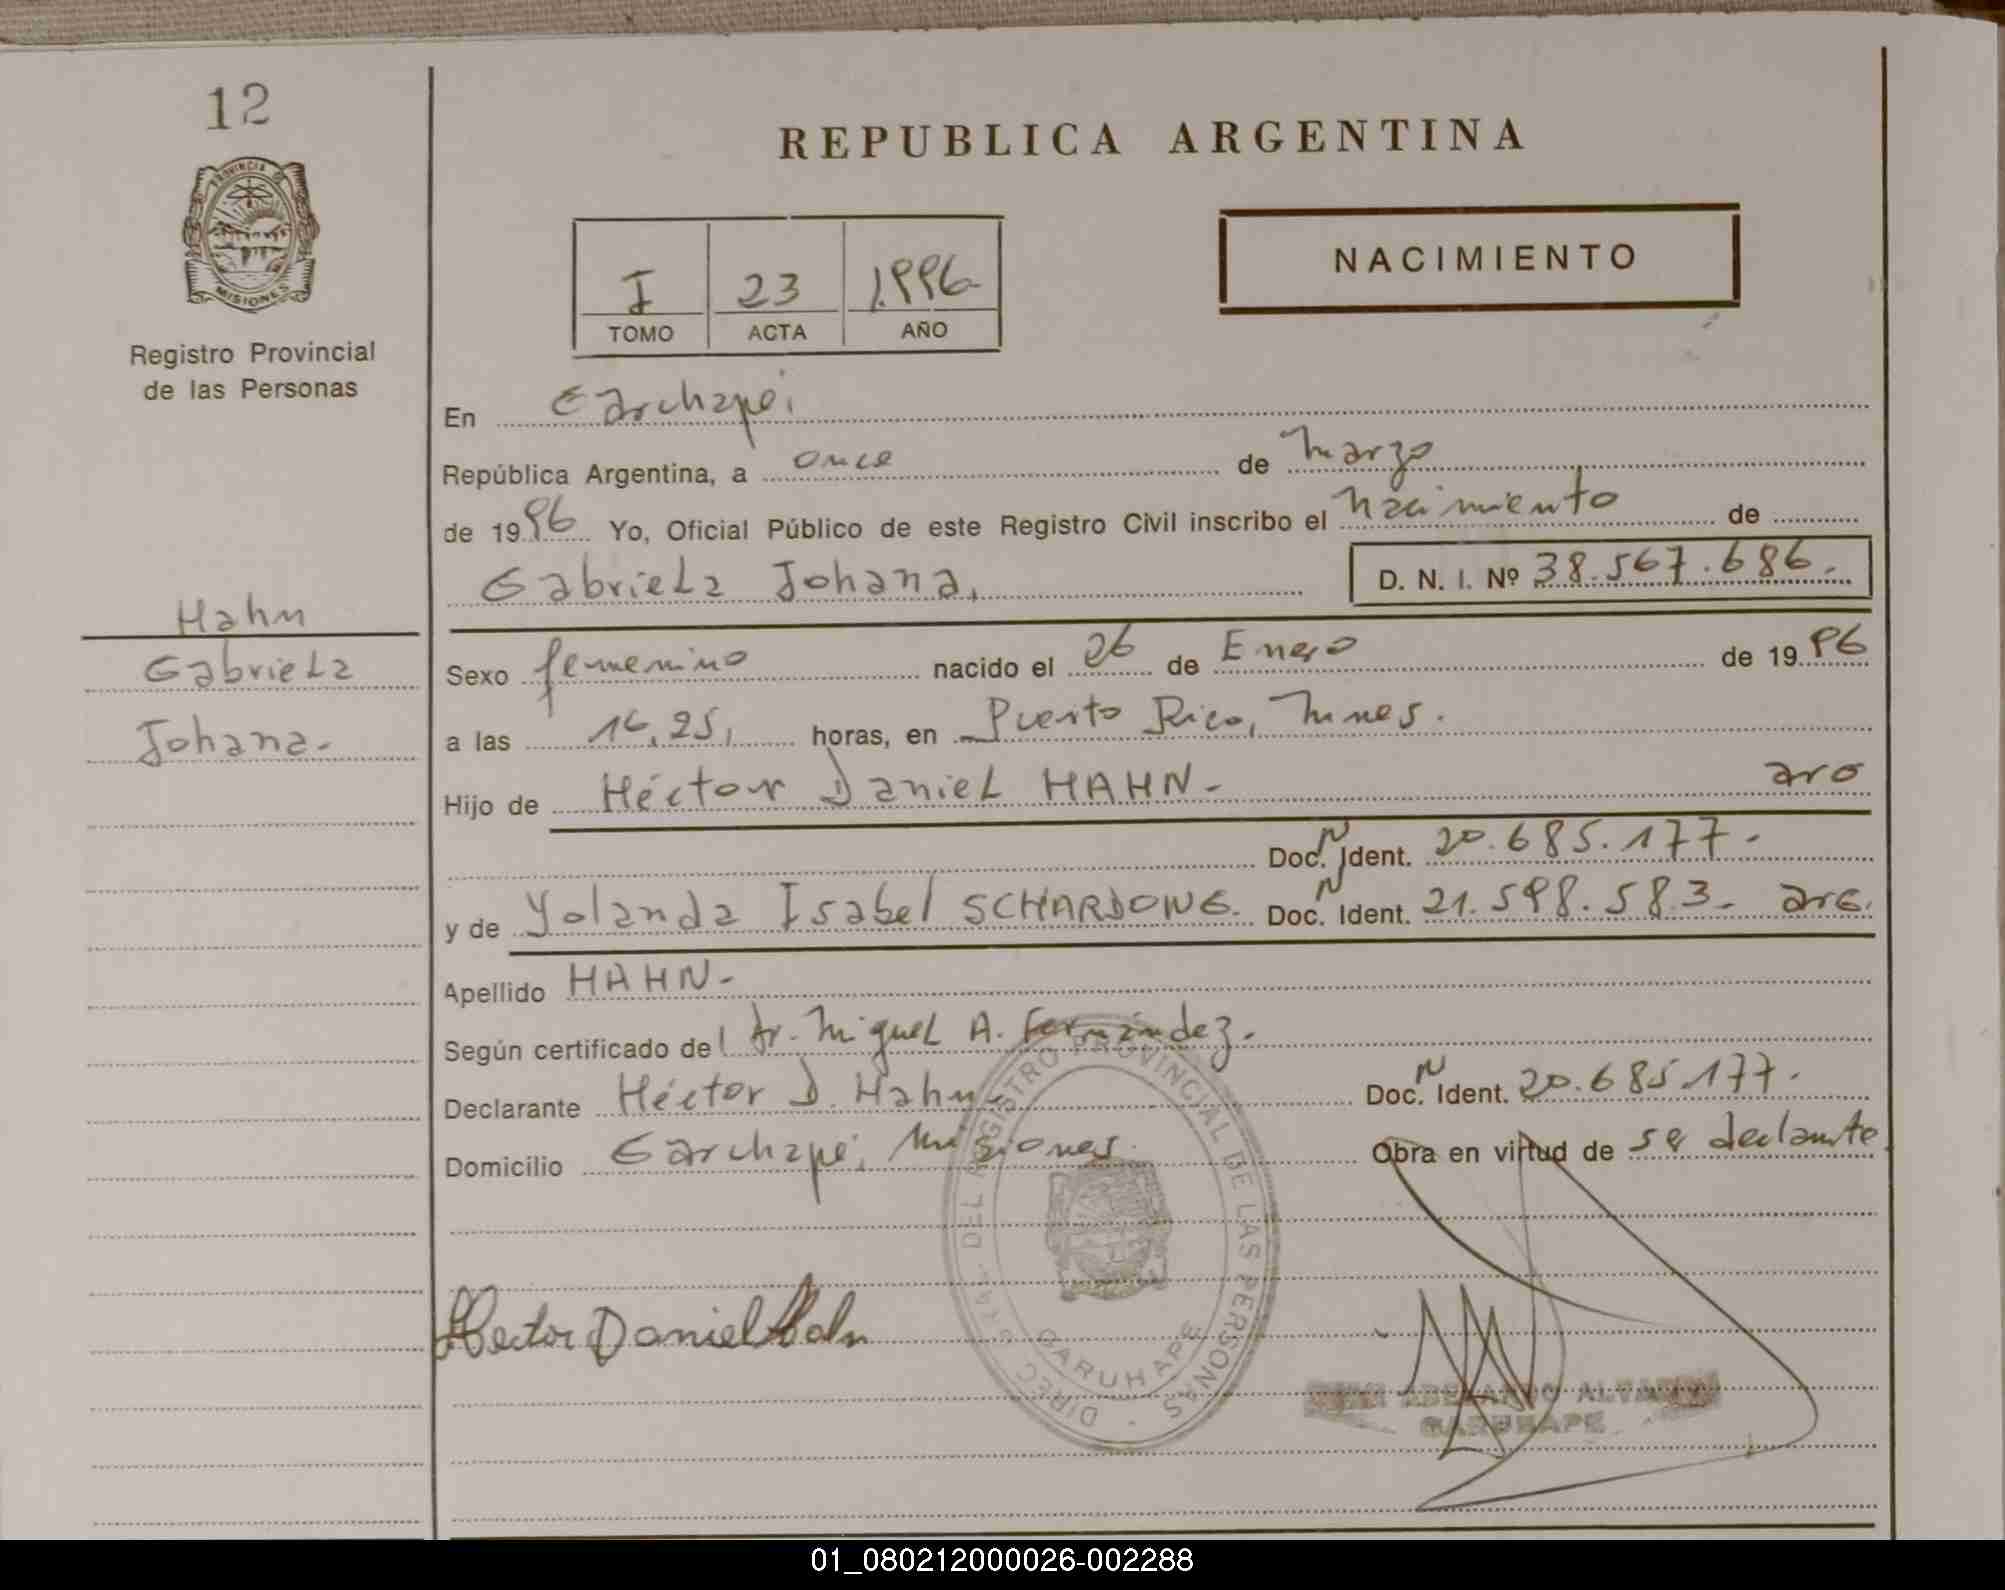 12
PROVINCIA DE
MISIONES
Registro Provincial
de las Personas
Hahn
Gabriela
Johana.-
REPUBLICA ARGENTINA
NACIMIENTO
I 23 1.996.-
TOMO ACTA AÑO
En Garuhapé;
República Argentina, a once de Marzo
de 1996 Yo, Oficial Público de este Registro Civil inscribo el Nacimiento de
Gabriela Johana, D. N. I. Nº 38.567.686.
Sexo femenino nacido el 26 de Enero de 1996
a las 16,25, horas, en Puerto Rico, Mnes.
Hijo de Héctor Daniel HAHN.- arg
Doc. N Ident. 20.685.177.-
y de Yolanda Isabel SCHARDONG. Doc. N Ident. 21.598.583.- arg.
Apellido HAHN.-
Según certificado del Dr. Miguel A. Fernández.
Declarante Héctor D. Hahn Doc. N Ident. 20.685.177.
Domicilio Garuhapé; Misiones. Obra en virtud de ser declarante
DIREC DEL REGISTRO PROVINCIAL DE LAS PERSONAS
GARUHAPE
Hector Daniel Hahn
ABELARDO
GARUHAPE
01_080212000026-002288